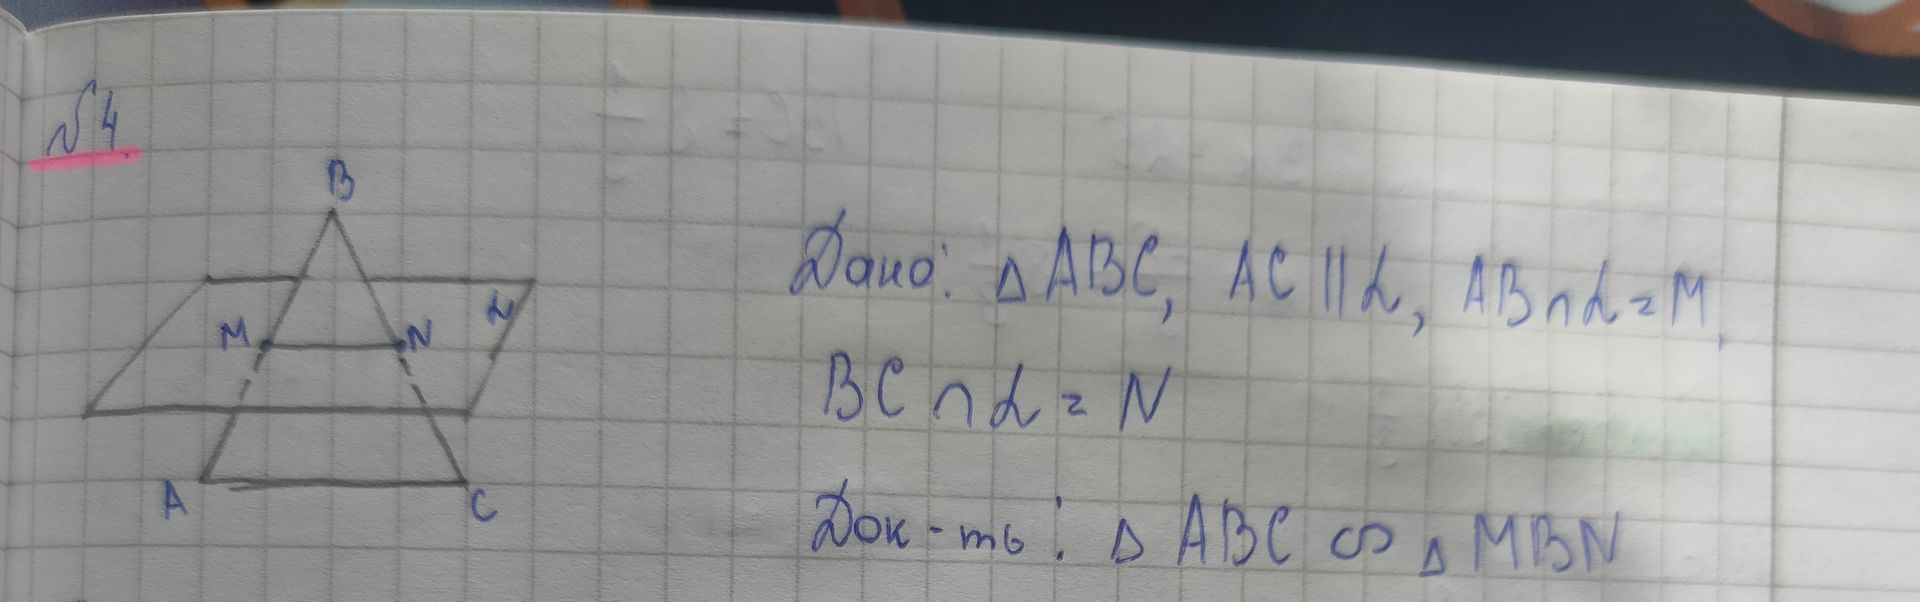 №4
B
M
N
α
A
C
Дано: △ABC, AC || α, AB ∩ α = M,
BC ∩ α = N
Док-ть: △ ABC ∽ △ MBN